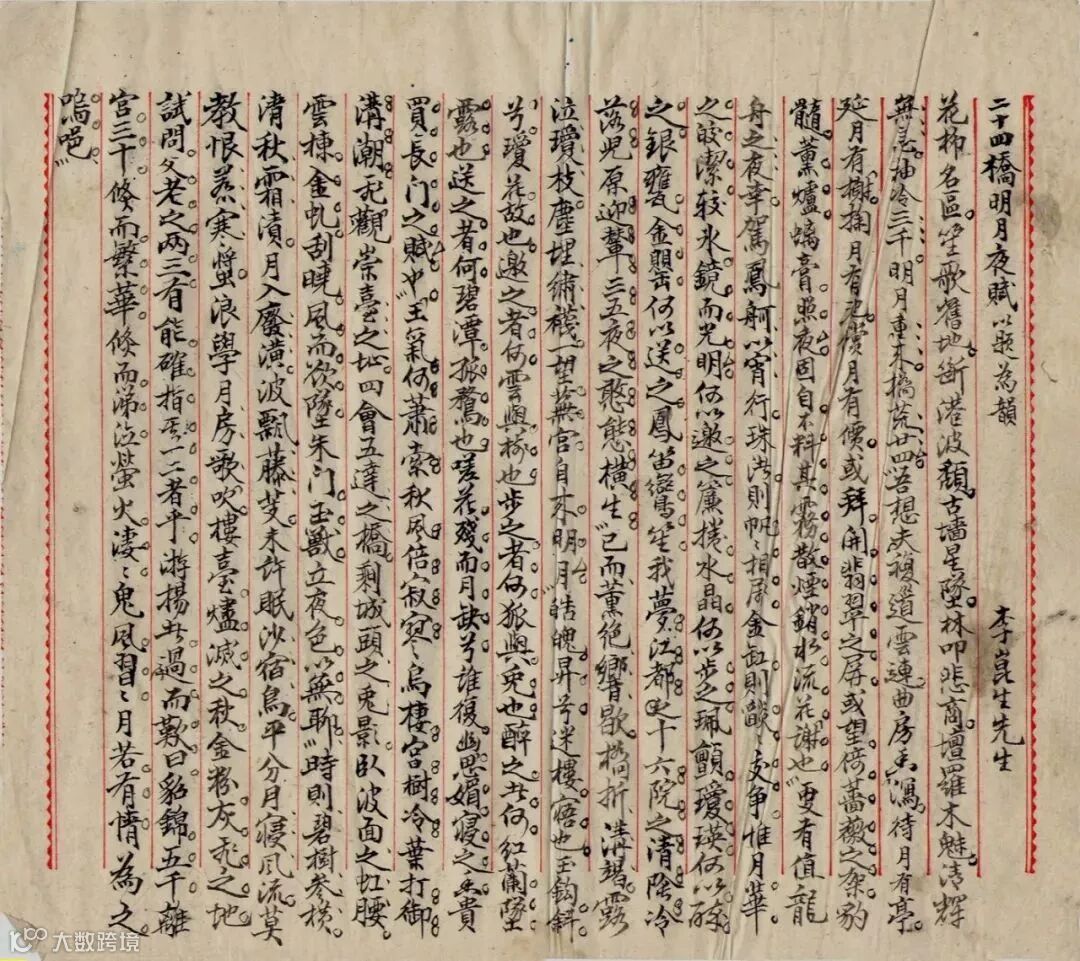 二十四橋明月夜賦以題為韻 李崑生先生
花柳名區笙歌舊地斷港波頹古墻星墜林叩悲商壇羅木魅清輝
無恙袖冷三千明月重來橋荒廿四吾想夫複道雲連曲房香瀉待月有亭
延月有榭掬月有池償月有價或拜開翡翠之屏或望倚薔薇之架豹
髓薰爐螭膏照夜固自不料其霧散煙銷水流花謝也更有值龍
舟之夜幸駕鳳舸以宵行珠港則帆帆相屬金缸則燄燄交爭惟月華
之皎潔較氷鏡而光明何以邀之簾捲水晶何以步之珮顫瓊瑛何以酹
之銀甕金罌何以送之鳳笛鸞笙我夢江都之十六院之清陰冷
落況原迎輦三五夜之憨態橫生已而薰絕響歇橋折溝竭露
泣瓊枝塵埋繡襪望蕪宮自來明月皓魄昇兮迷樓寤也玉鉤斜
兮瓊花故也邀之者何雲與樹也步之者何狐與兔也醉之者何紅蘭墜
露也送之者何碧潭孤鶩也嗟花殘而月缺兮誰復幽思媚寢之香貴
買長門之賦也王氣何蕭索秋風倍寂寞烏棲宮樹冷葉打御
溝潮飛觀崇臺之址四會五達之橋剩城頭之兔影臥波面之虹腰
雲棟金虬刮曉風而欲墜朱門玉獸立夜色以無聊時則碧樹參橫
清秋霜漬月入廢潢波飄藤芰未許眠沙宿鳥平分月寢風流莫
教恨惹寒螿浪學月房歌吹樓臺燼滅之秋金粉灰飛之地
試問父老之兩三有能確指其一二者乎游揚者過而歎曰貂錦五千離
宮三十倏而繁華倏而涕泣螢火淒淒鬼風習習月若有情為之
嗚唈
大数跨境